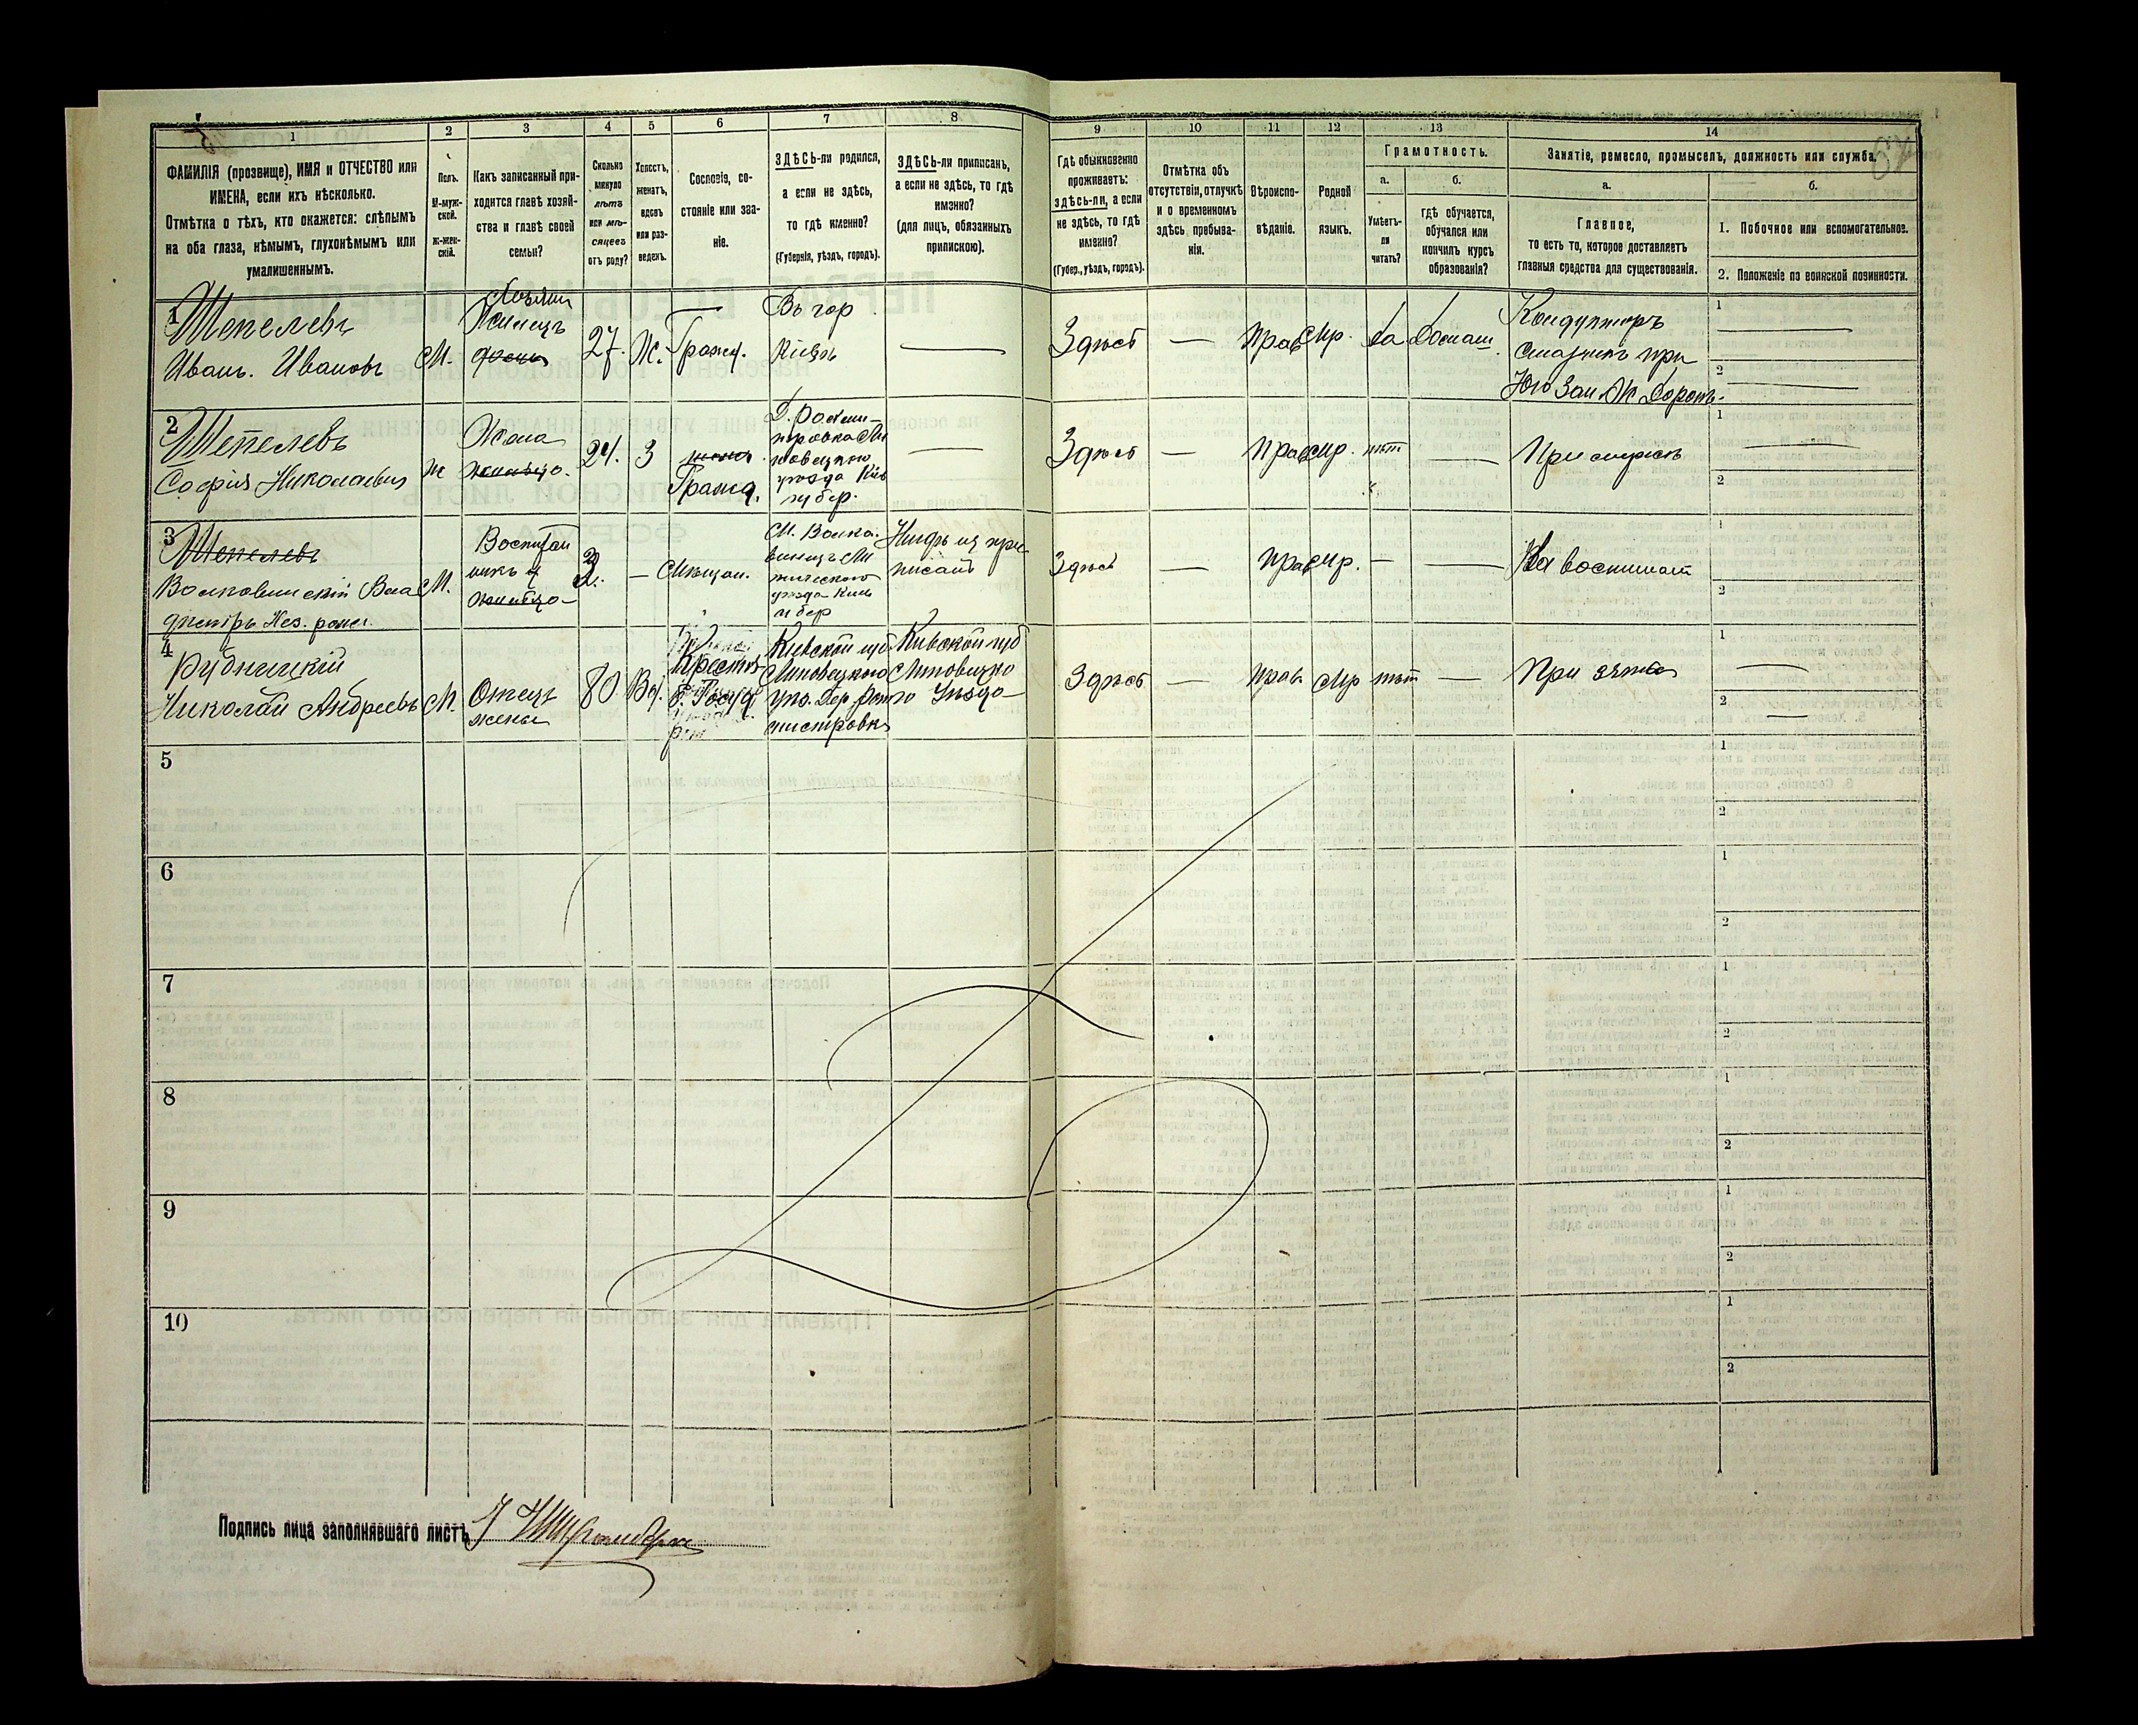 1
ФАМИЛІЯ (прозвище), ИМЯ и ОТЧЕСТВО или
ИМЕНА, если ихъ нѣсколько.
Отмѣтка о тѣхъ, кто окажется: слѣпымъ
на оба глаза, нѣмымъ, глухонѣмымъ или
умалишеннымъ.
2
Полъ.
М-муж-
ской.
ж-жен-
скій.
3
Какъ записанный при-
ходится главѣ хозяй-
ства и главѣ своей
семьи?
4
Сколько
минуло
лѣтъ
или мѣ-
сяцевъ
отъ роду?
5
Холостъ,
женатъ,
вдовъ
или раз-
веденъ.
6
Сословіе, со-
стояніе или зва-
ніе.
7
ЗДѢСЬ-ли родился,
а если не здѣсь,
то гдѣ именно?
(Губернія, уѣздъ, городъ).
8
ЗДѢСЬ-ли приписанъ,
а если не здѣсь, то гдѣ
именно?
(для лицъ, обязанныхъ
припискою).
9
Гдѣ обыкновенно
проживаетъ:
здѣсь-ли, а если
не здѣсь, то гдѣ
именно?
(Губер., уѣздъ, городъ).
10
Отмѣтка объ
отсутствіи, отлучкѣ
и о временномъ
здѣсь пребыва-
ніи.
11
Вѣроиспо-
вѣданіе.
12
Родной
языкъ.
13
Грамотность.
а.
Умѣетъ-
ли
читать?
б.
гдѣ обучается,
обучался или
кончилъ курсъ
образованія?
14
Занятіе, ремесло, промыселъ, должность или служба.
а.
Главное,
то есть то, которое доставляетъ
главныя средства для существованія.
б.
1. Побочное или вспомогательное.
2. Положеніе по воинской повинности.
1
Шепелевъ
Иванъ. Ивановъ
М.
Хозяинъ
27.
Ж.
Гражд.
Въ гор.
Кіевѣ
—
Здѣсь
—
Прав
Мр.
да
Домаш.
Кондукторъ
при
Юго Зап Ж Дорогъ.
1
2
2
Шепелевъ
Софія Николаевна
ж
Жена
24.
3
Гражд.
губер.
—
Здѣсь
—
Прав
Мр.
нѣт
—
При мужѣ
1
2
3
Шепелевъ
М.
Воспитан
никъ
2.
—
Мѣщан.
уѣзда Кіев
губер
Нигдѣ не при
писанъ
Здѣсь
—
Прав
Мр.
—
—
На воспитан
1
2
4
Рудницкій
Николай Андреевъ
М.
Отецъ
жены
80
Вд.
Крестья
Кіевской губ
Липовецкого
Киевской губ
Липовецко
го Уѣзда
Здѣсь
—
прав
Мр
нѣт
—
При зятѣ
1
2
5
1
2
6
1
2
7
1
2
8
1
2
9
1
2
10
1
2
Подпись лица заполнявшаго листъ